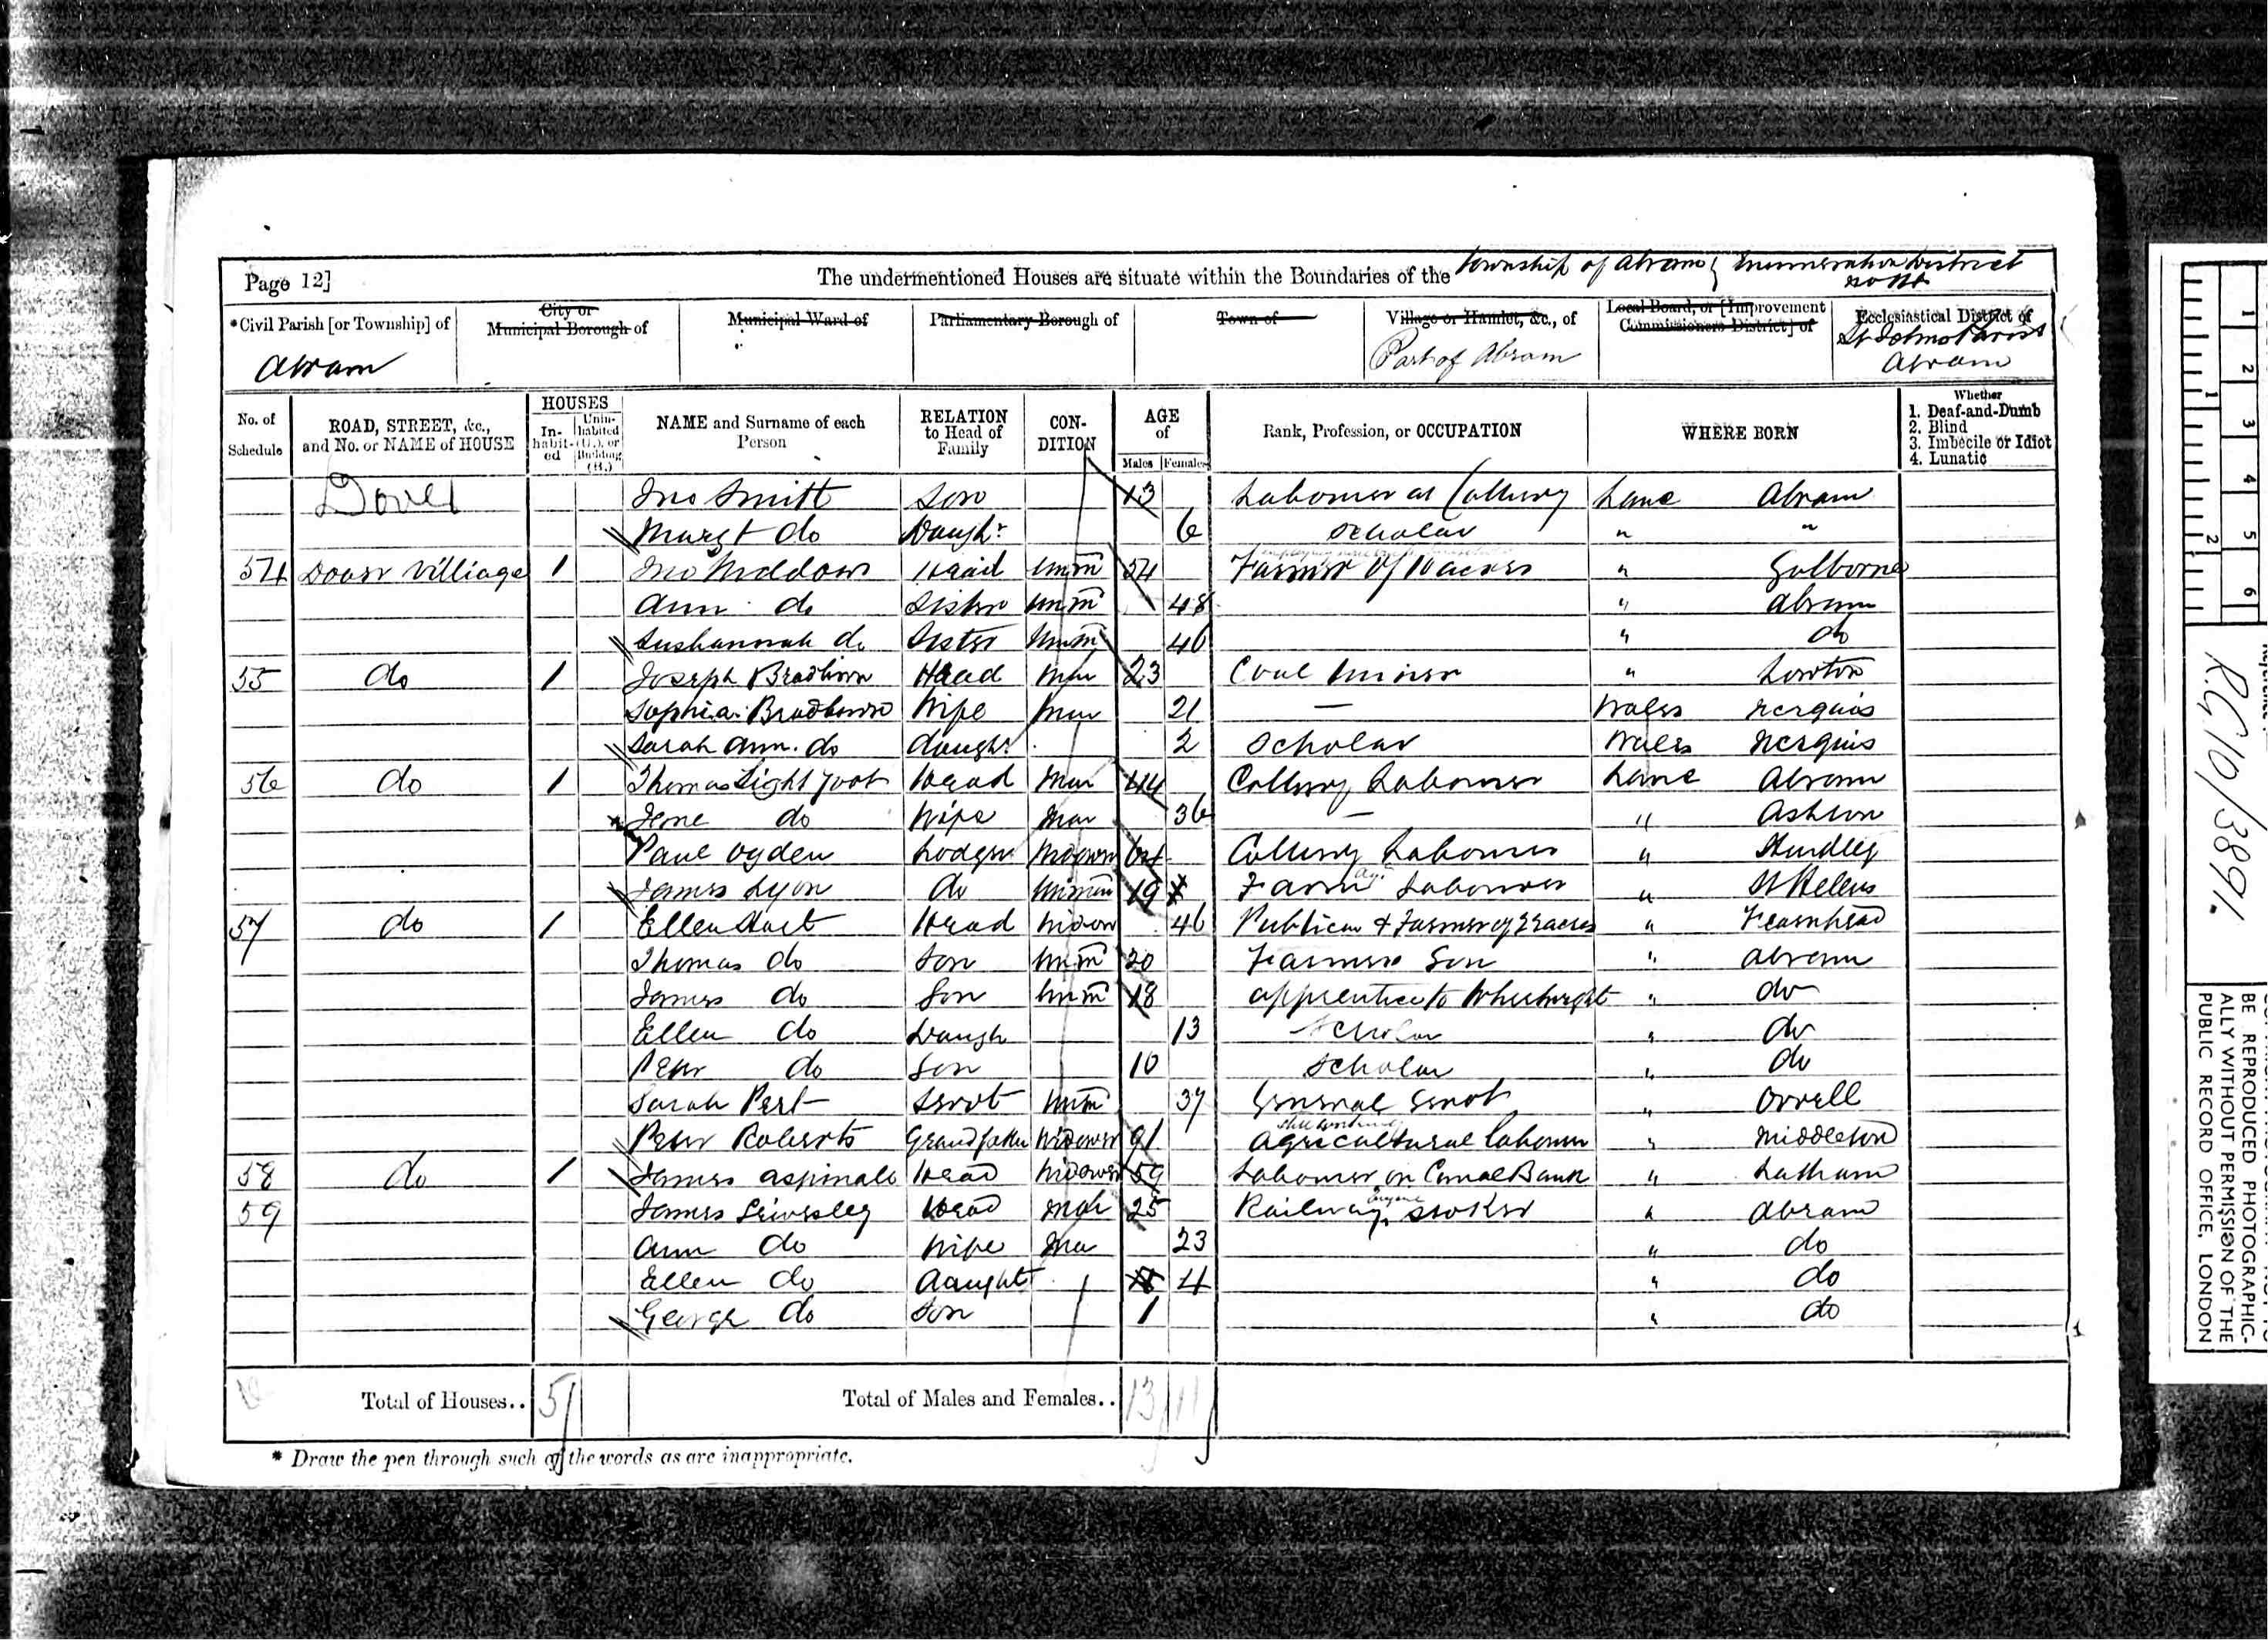 Page 12]
The undermentioned Houses are situate within the Boundaries of the Township of Abram Enumeration District
*Civil Parish [or Township] of
Abram
City or Municipal Borough of
Municipal Ward of
Parliamentary Borough of
Town of
Village or Hamlet, &c., of
Part of Abram
Local Board, or [Improvement Commissioners District] of
Ecclesiastical District of
St Johns Parish
Abram
No. of Schedule
ROAD, STREET, &c., and No. or NAME of HOUSE
HOUSES
In-habit-ed
Unin-habited (U.), or Building (B.)
NAME and Surname of each Person
RELATION to Head of Family
CON-DITION
AGE of
Males Females
Rank, Profession, or OCCUPATION
WHERE BORN
Whether
1. Deaf-and-Dumb
2. Blind
3. Imbecile or Idiot
4. Lunatic
Dover Jno Smith Son 13 Labourer at Colliery Lanc Abram
Margt do Daughr 6 Scholar " "
54 Dover Villiage 1 Jno Meddows Head Unm 54 Farmer of 10 acres " Golborne
Ann do Sister Unm 48 " Abram
Sushannah do Sister Unm 46 " do
55 do 1 Joseph Bradburn Head Mar 23 Coal Miner " Lowton
Sophia Bradburn Wife Mar 21 — Wales Nerquis
Sarah Ann do daughr 2 Scholar Wales Nerquis
56 do 1 Thomas Lightfoot Head Mar 44 Colliery Labourer Lanc Abram
Jane do Wife Mar 36 — " Ashton
Paul Ogden Lodger Widower 64 Colliery Labourer " Hindley
James Lyon do Unmm 19 Farm Labourer " St Hellens
57 do 1 Ellen Hart Head Widow 46 Publican & Farmer of acres " Fearnhead
Thomas do Son Unm 20 Farmers Son " Abram
James do Son Unm 18 apprentice to Wheelwright " do
Ellen do Daugh 13 Scholar " do
Peter do Son 10 Scholar " do
Sarah Pert Servt Unm 37 General Servt " Orrell
Peter Roberts Grandfather Widower 91 still working agricultural labourer " Middleton
58 do 1 James Aspinall Head Widower 59 Labourer on Canal Bank " Latham
59 James Leivesley Head Mar 25 Railway Engine Stoker " Abram
Ann do Wife Mar 23 " do
Ellen do daught 4 " do
George do Son 1 " do
Total of Houses.. 5
Total of Males and Females.. 13 11
* Draw the pen through such of the words as are inappropriate.
1
2
3
4
5
6
1
2
R.G. 10/3891.
BE REPRODUCED PHOTOGRAPHIC-
ALLY WITHOUT PERMISSION OF THE
PUBLIC RECORD OFFICE, LONDON